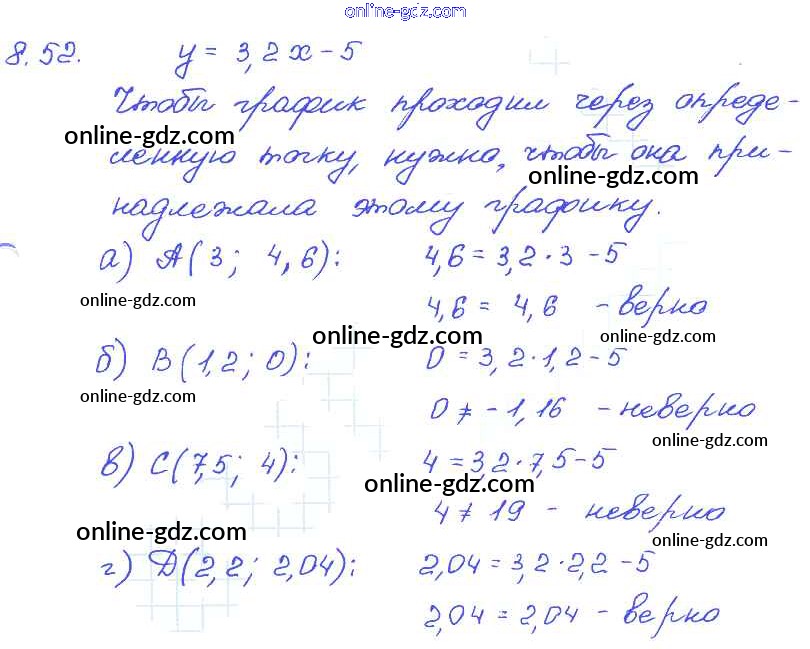 online-gdz.com
8.52. y = 3,2x - 5
Чтобы график проходил через опреде-
online-gdz.com
ленную точку, нужно, чтобы она при-
online-gdz.com
надлежала этому графику.
а) A(3; 4,6): 4,6 = 3,2 · 3 - 5
online-gdz.com
4,6 = 4,6 - верно
online-gdz.com online-gdz.com
б) B(1,2; 0): 0 = 3,2 · 1,2 - 5
online-gdz.com
0 ≠ -1,16 - неверно
online-gdz.com
в) C(7,5; 4): 4 = 3,2 · 7,5 - 5
online-gdz.com
4 ≠ 19 - неверно
online-gdz.com online-gdz.com
г) D(2,2; 2,04): 2,04 = 3,2 · 2,2 - 5
2,04 = 2,04 - верно